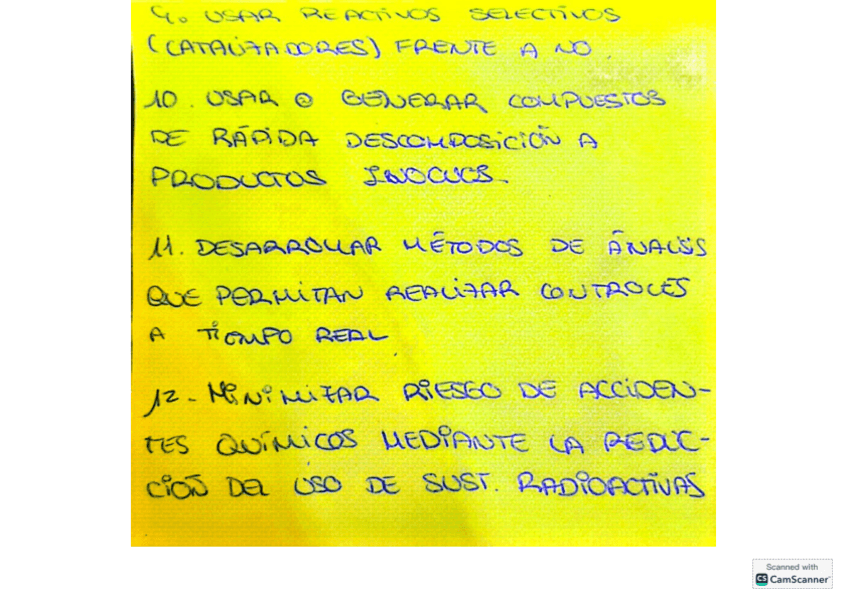 9. USAR REACTIVOS SELECTIVOS
(CATALIZADORES) FRENTE A NO
10. USAR O GENERAR COMPUESTOS
DE RÁPIDA DESCOMPOSICIÓN A
PRODUCTOS INOCUOS.
11. DESARROLLAR MÉTODOS DE ÁNALISIS
QUE PERMITAN REALIZAR CONTROLES
A TIEMPO REAL
12. MINIMIZAR RIESGO DE ACCIDEN-
TES QUÍMICOS MEDIANTE LA REDUC-
CIÓN DEL USO DE SUST. RADIOACTIVAS
Scanned with
CS CamScanner